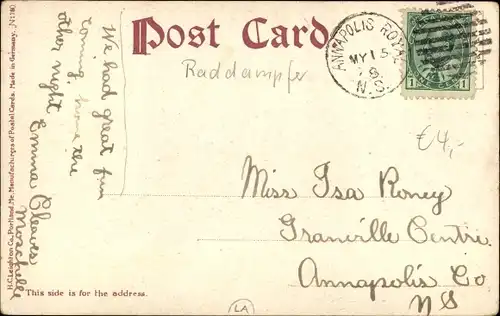 H.C. Leighton Co., Portland, Me. Manufacturers of Postal Cards. Made in Germany.
We had great fun
coming home the
other night
Emma Cleaves
Moschelle
Post Card
Raddampfer
ANNAPOLIS ROYAL
MY 15
N.S.
1
€4,-
Miss Isa Roney
Granville Centre
Annapolis Co
NS
This side is for the address.
LA